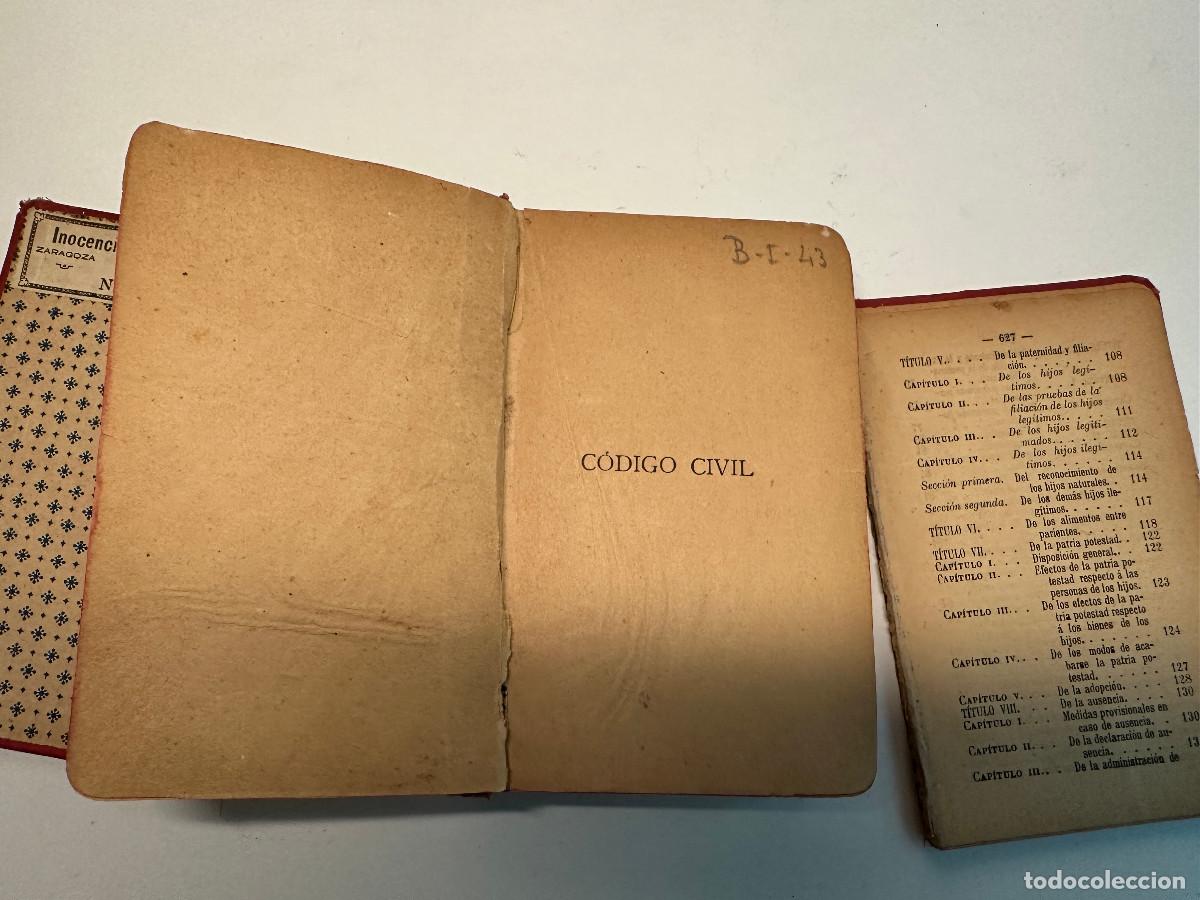 Inocenc
ZARAGOZA
N
B-I-43
CÓDIGO CIVIL
— 627 —
TÍTULO V. . . . De la paternidad y filia-
ción. . . . . . . 108
CAPÍTULO I. . . De los hijos legí-
timos. . . . . . 108
CAPÍTULO II. . . De las pruebas de la
filiación de los hijos
legítimos. . . . . 111
CAPÍTULO III. . . De los hijos legiti-
mados. . . . . . 112
CAPÍTULO IV. . . De los hijos ilegí-
timos. . . . . . 114
Sección primera. Del reconocimiento de
los hijos naturales. . 114
Sección segunda. De los demás hijos ile-
gítimos. . . . . . 117
TÍTULO VI. . . . De los alimentos entre
parientes. . . . . 118
TÍTULO VII. . . . De la patria potestad. . 122
CAPÍTULO I. . . Disposición general. . . 122
CAPÍTULO II. . . Efectos de la patria po-
testad respecto á las
personas de los hijos. 123
CAPÍTULO III. . . De los efectos de la pa-
tria potestad respecto
á los bienes de los
hijos. . . . . . . 124
CAPÍTULO IV. . . De los modos de aca-
barse la patria po-
testad. . . . . . 127
CAPÍTULO V. . . De la adopción. . . . 128
TÍTULO VIII. . . De la ausencia. . . . 130
CAPÍTULO I. . . Medidas provisionales en
caso de ausencia. . 130
CAPÍTULO II. . . De la declaración de au-
sencia. . . . . . 13
CAPÍTULO III. . . De la administración de
todocoleccion